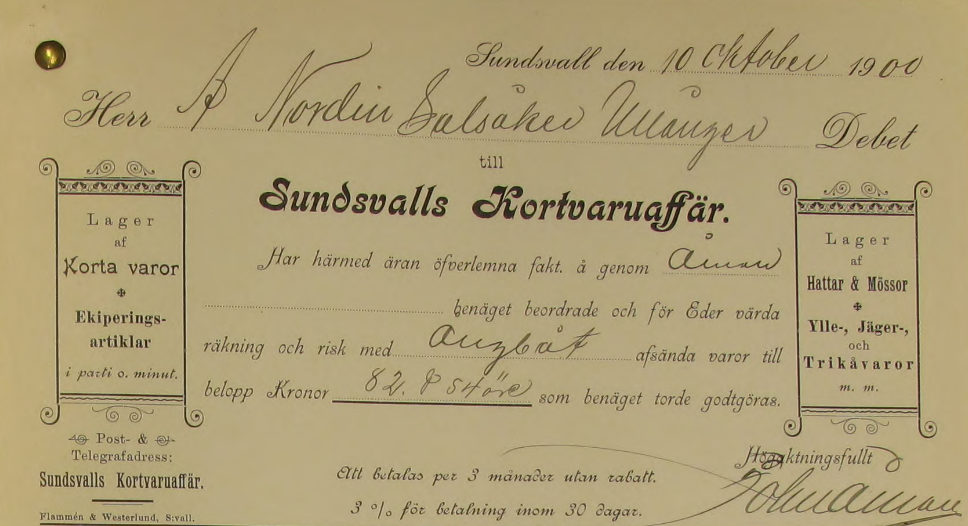 Sundsvall den 10 Oktober 1900
Herr A Nordin Salsåker Ullånger Debet
till
Sundsvalls Kortvaruaffär.
Lager
af
Korta varor
Ekiperings-
artiklar
i parti o. minut.
Har härmed äran öfverlemna fakt. å genom Åman
benäget beordrade och för Eder värda
räkning och risk med Ångbåt afsända varor till
belopp Kronor 82. & 54 öre som benäget torde godtgöras.
Lager
af
Hattar & Mössor
Ylle-, Jäger-,
och
Trikåvaror
m. m.
Post- &
Telegrafadress:
Sundsvalls Kortvaruaffär.
Flammén & Westerlund, S:vall.
Att betalas per 3 månader utan rabatt.
3 % för betalning inom 30 dagar.
Högaktningsfullt
Åman